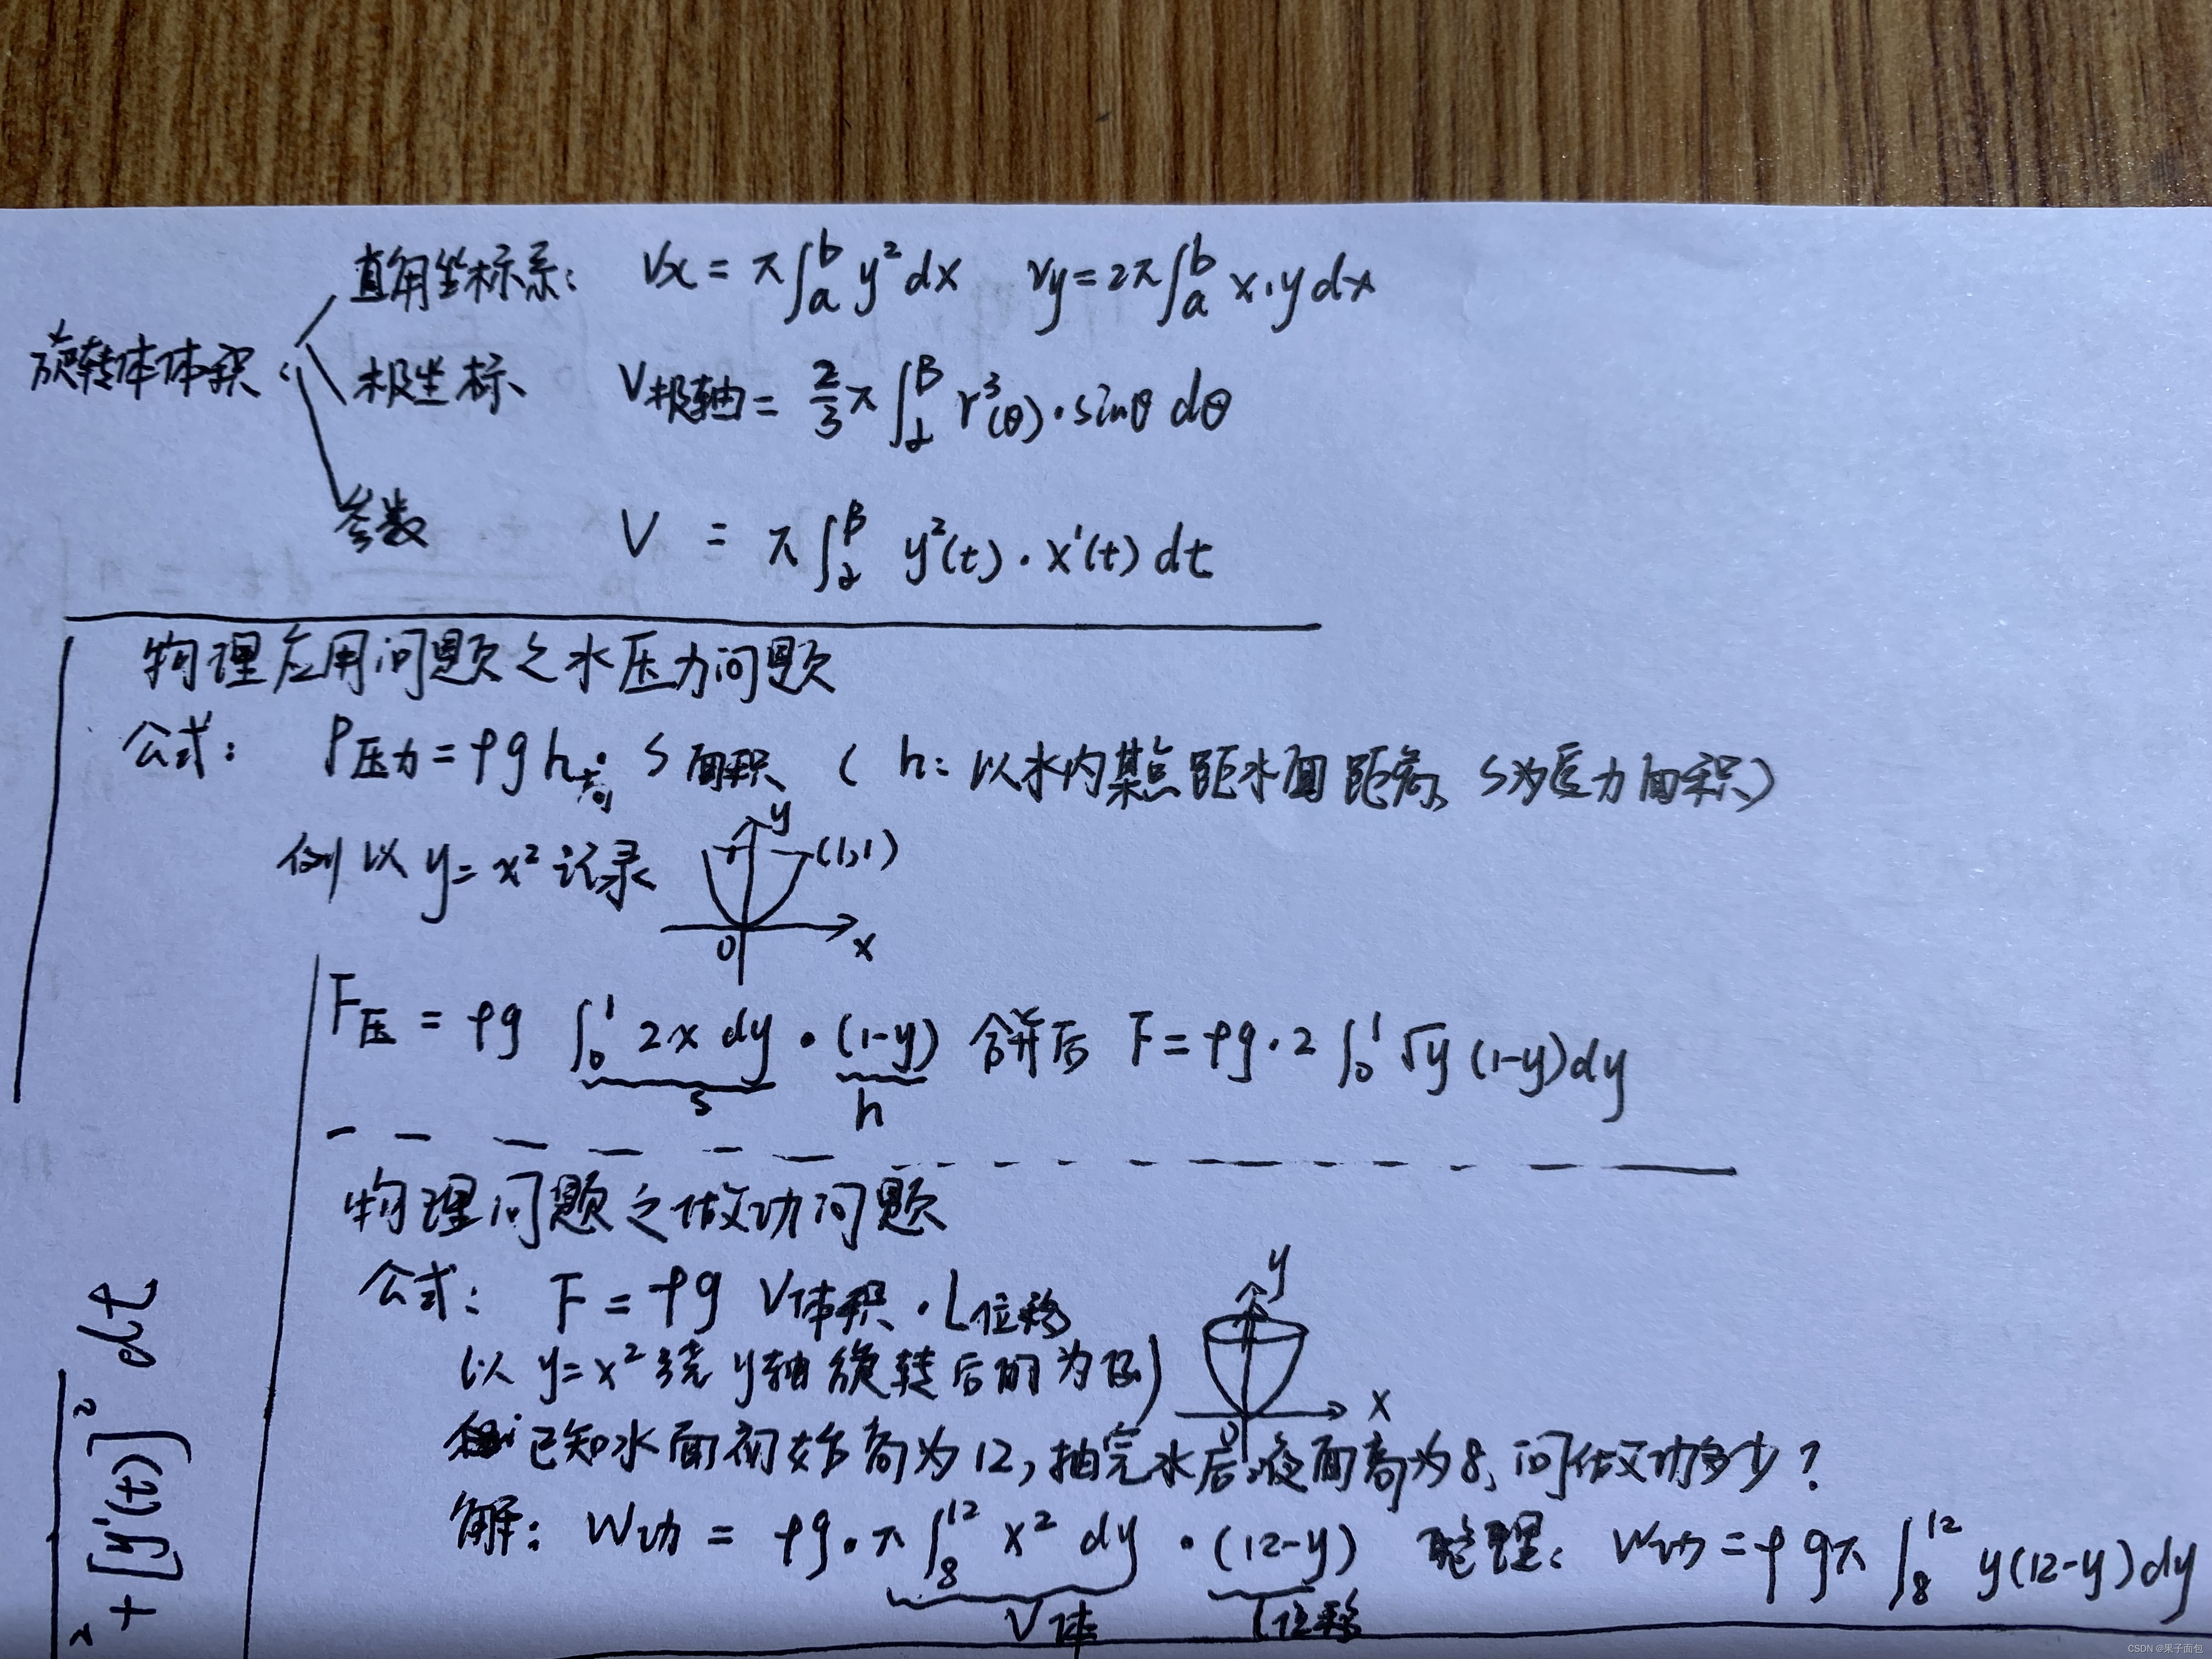 旋转体体积:
直角坐标系: Vx = π∫_a^b y² dx Vy = 2π∫_a^b x·y dx
极坐标 V极轴 = 2/3 π ∫_α^β r³(θ)·sinθ dθ
参数 V = π∫_α^β y²(t)·x'(t) dt
物理应用问题之水压力问题
公式: P压力 = ρg h S面积 ( h: 以水内某点距水面距离, S为受力面积)
例以 y=x² 记录
y
(1,1)
1
0
x
F压 = ρg ∫_0^1 2x dy · (1-y) 合并后 F = ρg·2∫_0^1 √y (1-y)dy
S h
物理问题之做功问题
公式: F = ρg V体积·L位移
以 y=x² 绕y轴旋转后的为例)
y
x
0
已知水面初始高为12, 抽完水后液面高为8, 问做功多少?
解: W功 = ρg·π∫_8^12 x² dy · (12-y) 整理: W功 = ρgπ∫_8^12 y(12-y)dy
V体 L位移
² + [y'(t)]² dt
CSDN @果子面包